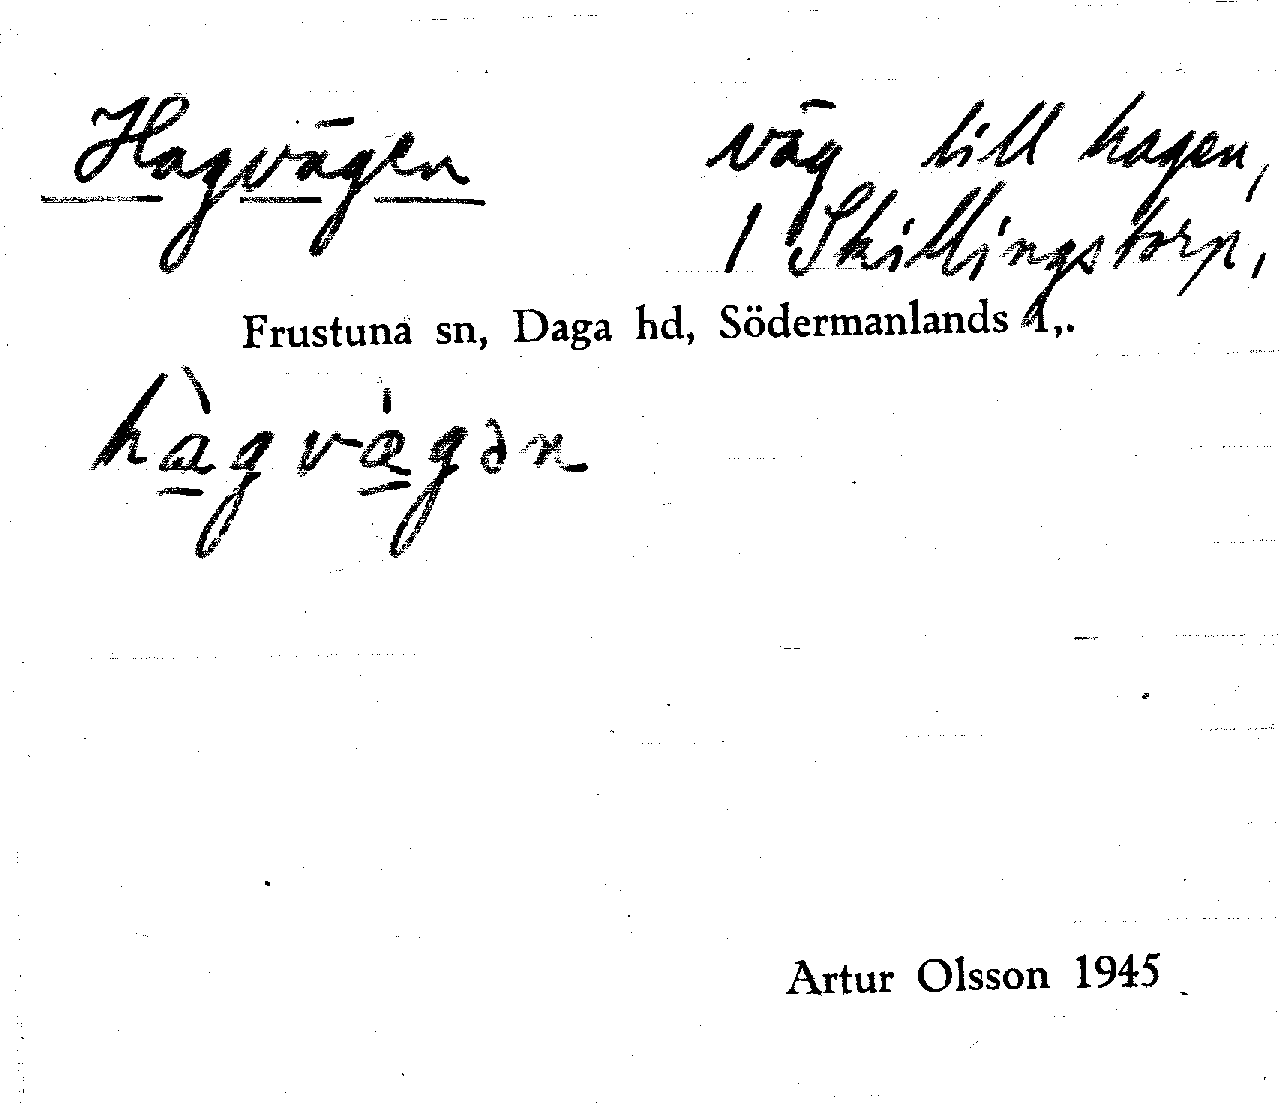 Hagvägen väg till hagen,
1 Skillingstorp,
Frustuna sn, Daga hd, Södermanlands l,.
hàgvǽgən
Artur Olsson 1945